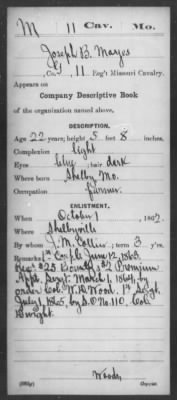 M 11 Cav. Mo.
Joseph B. Mayes
Co. G, 11 Reg't Missouri Cavalry.
Appears on
Company Descriptive Book
of the organization named above.
DESCRIPTION.
Age 22 years; height 5 feet 8 inches.
Complexion light
Eyes blue; hair dark
Where born Shelby Mo.
Occupation farmer.
ENLISTMENT.
When October 1, 186
Where Shelbyville
By whom J. M. Collier; term 3 y'rs.
Remarks: 1st Corpl June 12, 1863.
Rec'd $25 Bounty $2 Premium
Appt. Sergt. March 1, 1864, by
order Col. W. D. Wood. 1st Sergt.
July 1, 1865, by S.O. No. 110, Col.
Dwight.
Woods
Copyist.